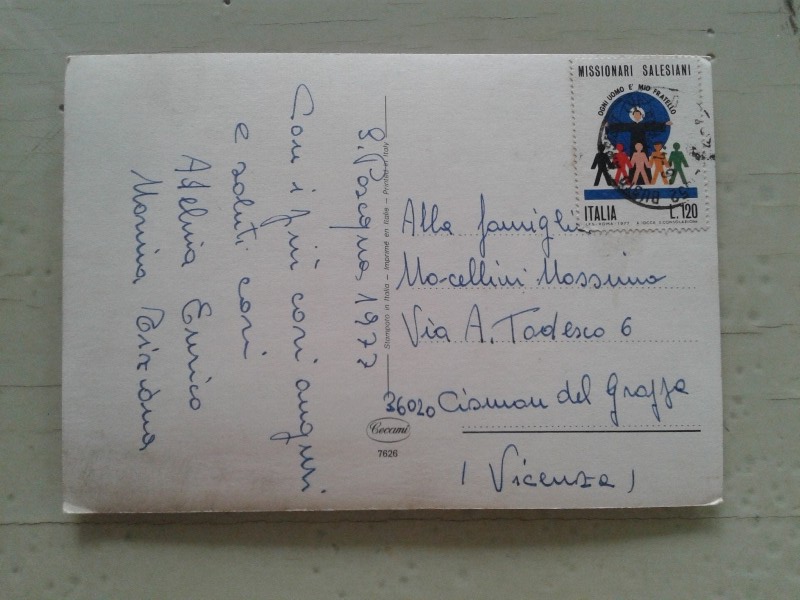 S. Pasqua 1977
Con i più cari auguri
e saluti cari
Adelina Enrico
Marina Tiziana
Stampato in Italia – Imprimé en Italie – Printed in Italy
MISSIONARI SALESIANI
OGNI UOMO E' MIO FRATELLO
ITALIA L.120
1977
Alla famiglia
Marcellini Massimo
Via A. Todesco 6
36020 Cismon del Grappa
(Vicenza)
Cecami
7626